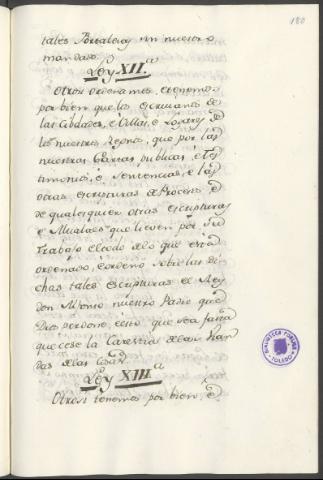 180
tales Fortalezas sin nuestro
mandado.
Ley XII.a
Otrosi ordenamos, e tenemos
por bien que los escrivanos de
las Cibdades, e Villas, e Logares de
los nuestros Reynos, que por las
nuestras Cartas, publicas, e Tes
timonios, e Sentencias, e las
otras escripturas de Proceso, e
de qualesquier otras escripturas
e Mualaes que lieven por su
trabajo el codo de lo que está
ordenado, e ordenó sobre las di
chas tales escripturas el Rey
don Alfonso nuestro Padre que
Dios perdone, esto que sea fasta
que cese la carestia de las vian
das de las cosas.
Ley XIII.a
Otrosi tenemos por bien, e
BIBLIOTECA PUBLICA
TOLEDO